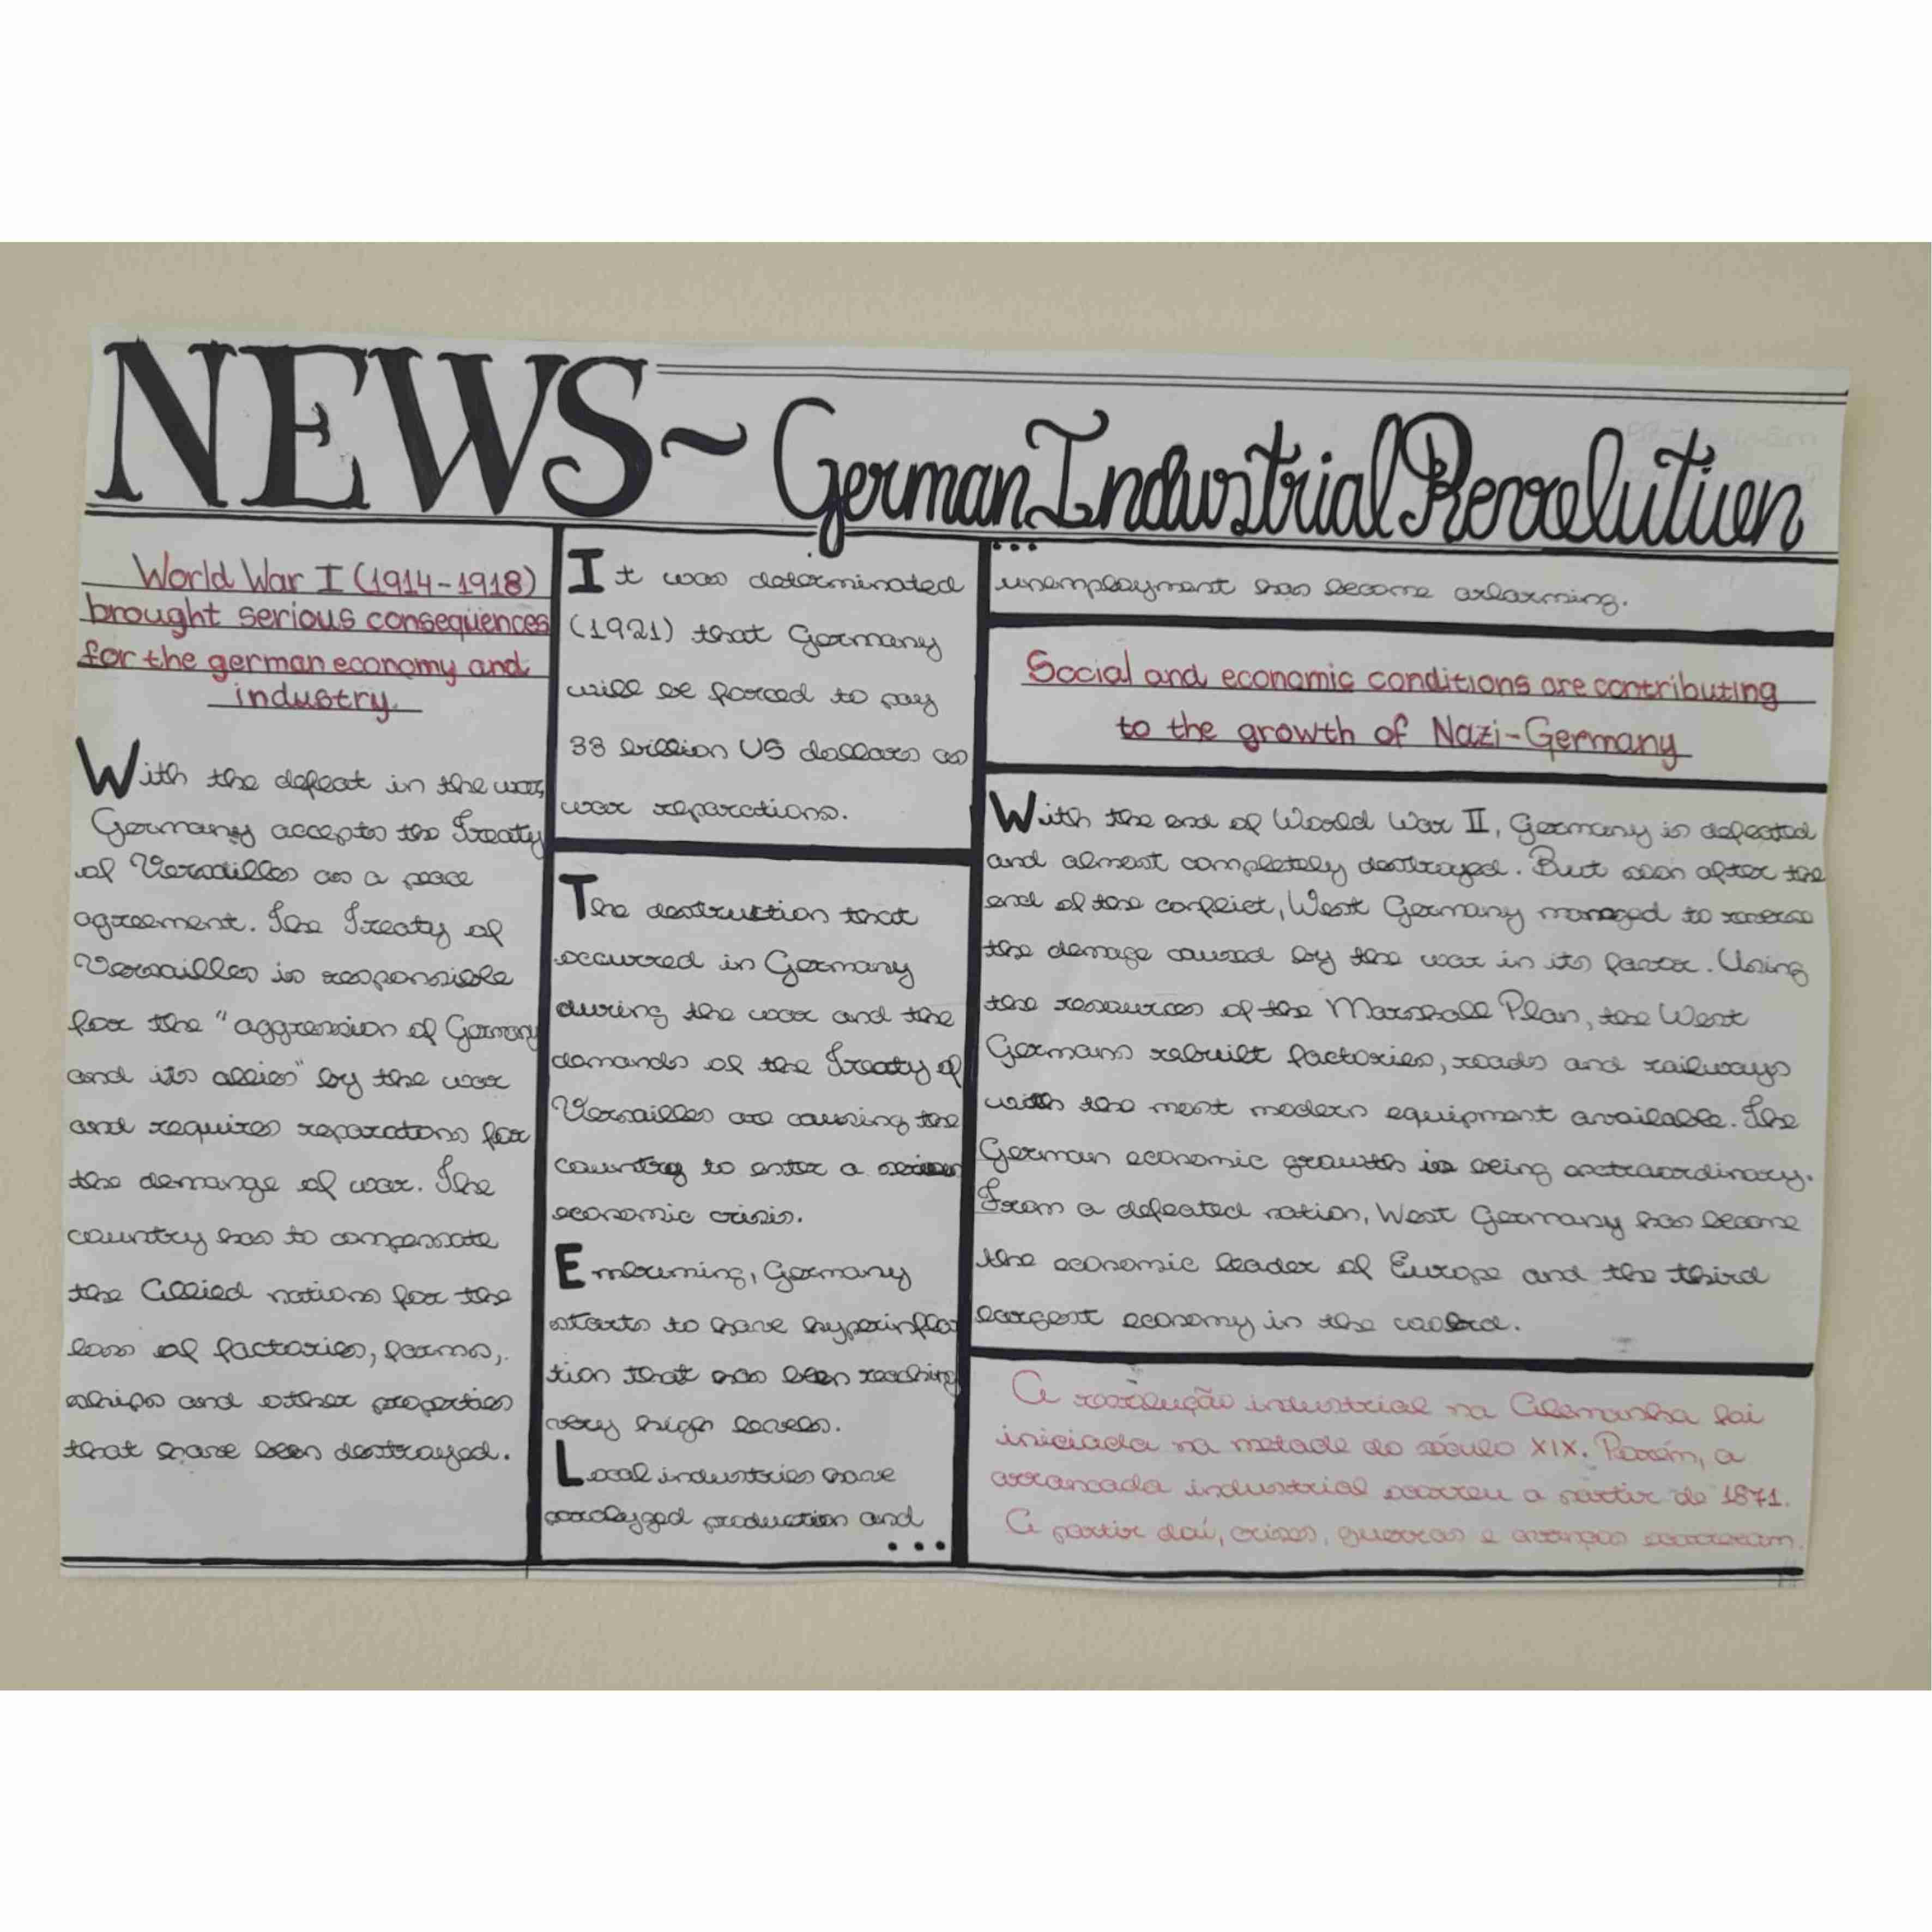 NEWS~ German Industrial Revolution
World War I (1914-1918)
brought serious conseqüences
for the german economy and
industry.
With the defeat in the war,
Germany accepts the Treaty
of Versailles as a peace
agreement. The Treaty of
Versailles is responsible
for the "aggression of Germany
and its allies" by the war
and requires reparatons for
the demange of war. The
country has to compensate
the Allied nations for the
loss of factories, farms,
ships and other properties
that have been destroyed.
It was determinated
(1921) that Germany
will be forced to pay
33 billion US dollars as
war reparations.
The destruction that
occurred in Germany
during the war and the
demands of the Treaty of
Versailles are causing the
country to enter a serious
economic crisis.
Embruming, Germany
starts to have hyperinfla
tion that has been reaching
very high levels.
Local industries have
paralyzed production and
...
...
unemployment has become arlarming.
Social and economic conditions are contributing
to the growth of Nazi-Germany
With the end of World War II, Germany is defeated
and almost completely destroyed. But soon after the
end of the conflict, West Germany managed to reverse
the demage caused by the war in its favor. Using
the resources of the Marshall Plan, the West
Germans rebuilt factories, roads and railways
with the most modern equipment available. The
German economic growth is being extraordinary.
From a defeated nation, West Germany has become
the economic leader of Europe and the third
largest economy in the world.
A revolução industrial na Alemanha foi
iniciada na metade do século XIX. Porém, a
arrancada industrial ocorreu a partir de 1871.
A partir daí, crises, guerras e avanços ocorreram.